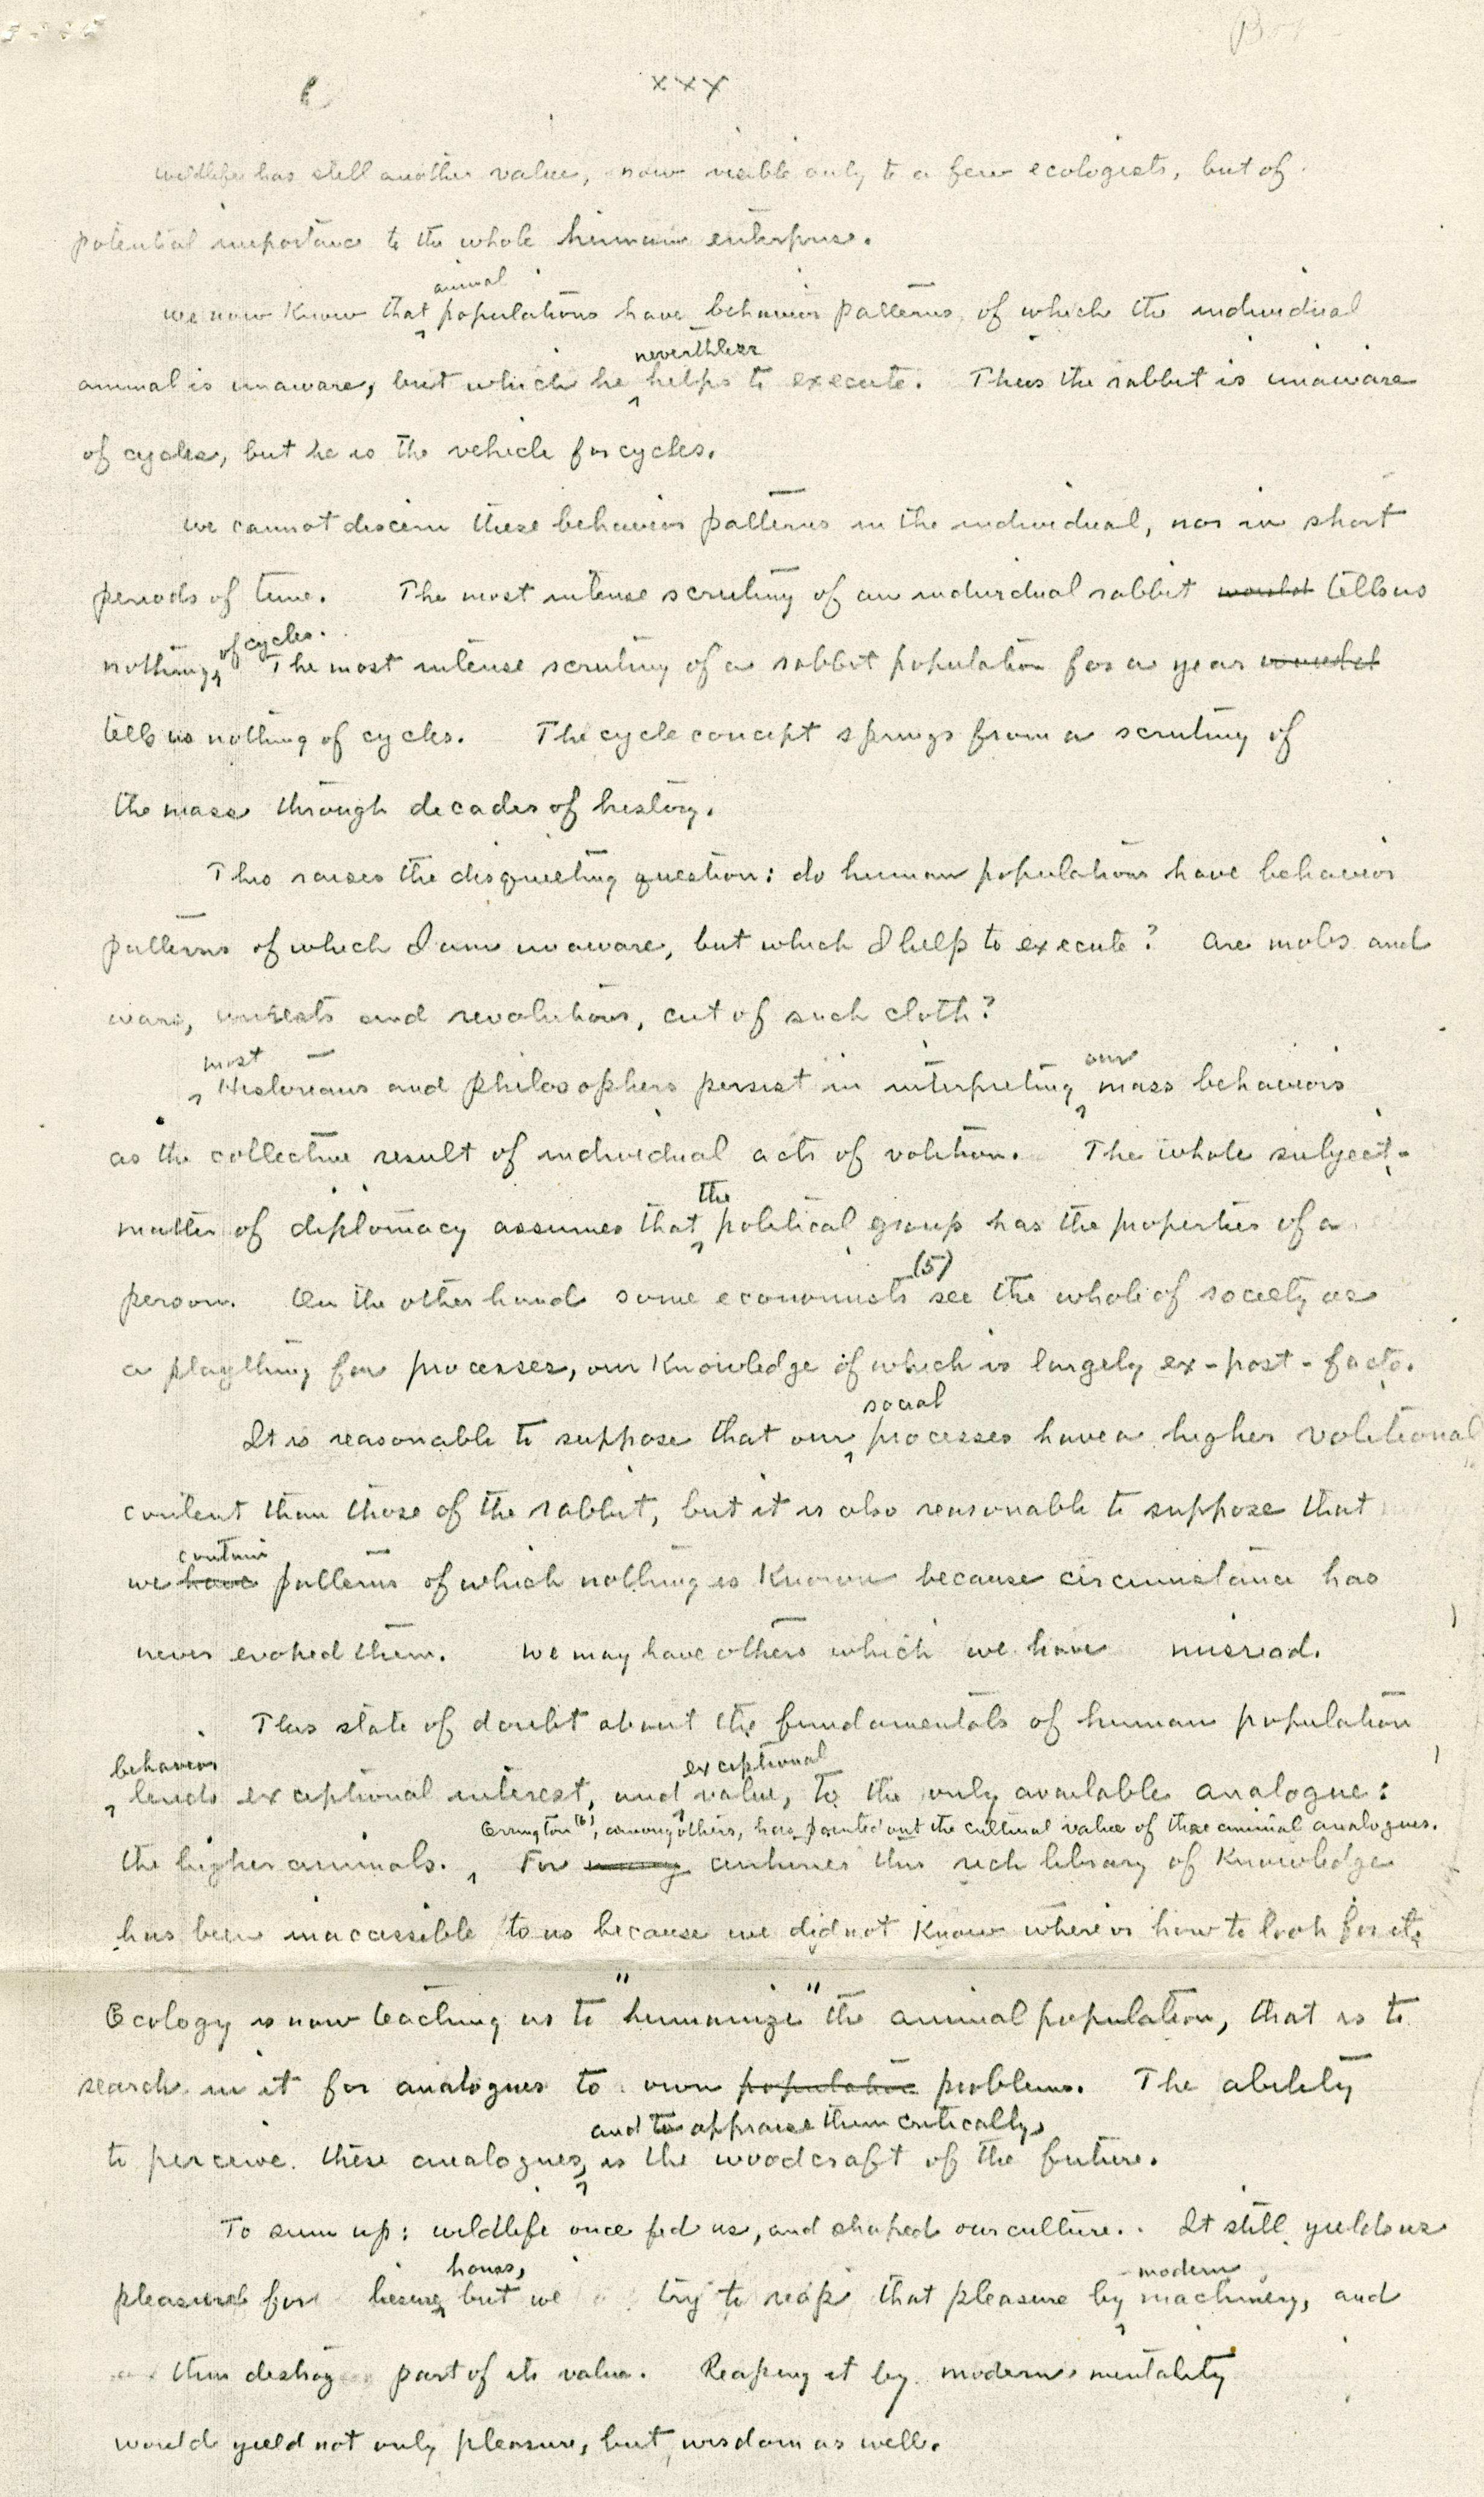 xxx
wildlife has still another value, now visible only to a few ecologists, but of
potential importance to the whole human enterprise.
animal
we now know that populations have behavior patterns of which the individual
neverthless
animal is unaware, but which he helps to execute. Thus the rabbit is unaware
of cycles, but he is the vehicle for cycles.
we cannot discern these behavior patterns in the individual, nor in short
periods of time. The most intense scrutiny of an individual rabbit tells us
of cycles.
nothing. The most intense scrutiny of a rabbit population for a year
tells us nothing of cycles. The cycle concept springs from a scrutiny of
the mass through decades of history.
This raises the disquieting question: do human populations have behavior
patterns of which I am unaware, but which I help to execute? Are mobs and
wars, unrests and revolutions, cut of such cloth?
most our
Historians and philosophers persist in interpreting mass behaviors
as the collective result of individual acts of volition. The whole subject-
the
matter of diplomacy assumes that political group has the properties of a
(5)
person. On the other hand some economists see the whole of society as
a plaything for processes, our knowledge of which is largely ex-post-facto.
social
It is reasonable to suppose that our processes have a higher volitional
content than those of the rabbit, but it is also reasonable to suppose that
contain
we have patterns of which nothing is known because circumstance has
never evoked them. we may have others which we have misread.
This state of doubt about the fundamentals of human population
behavior exceptional
lends exceptional interest, and value, to the only available analogue:
Errington(6), among others, has pointed out the cultural value of these animal analogues.
the higher animals. For many centuries this rich library of knowledge
has been inaccessible to us because we did not know where or how to look for it.
Ecology is now teaching us to "humanize" the animal population, that is to
search in it for analogues to own population problems. The ability
and to appraise them critically,
to perceive these analogues, is the woodcraft of the future.
To sum up: wildlife once fed us, and shaped our culture. It still yields us
hours, modern
pleasure for leisure, but we try to reap that pleasure by machinery, and
thus destroy part of its value. Reaping it by modern mentality
would yield not only pleasure, but wisdom as well.